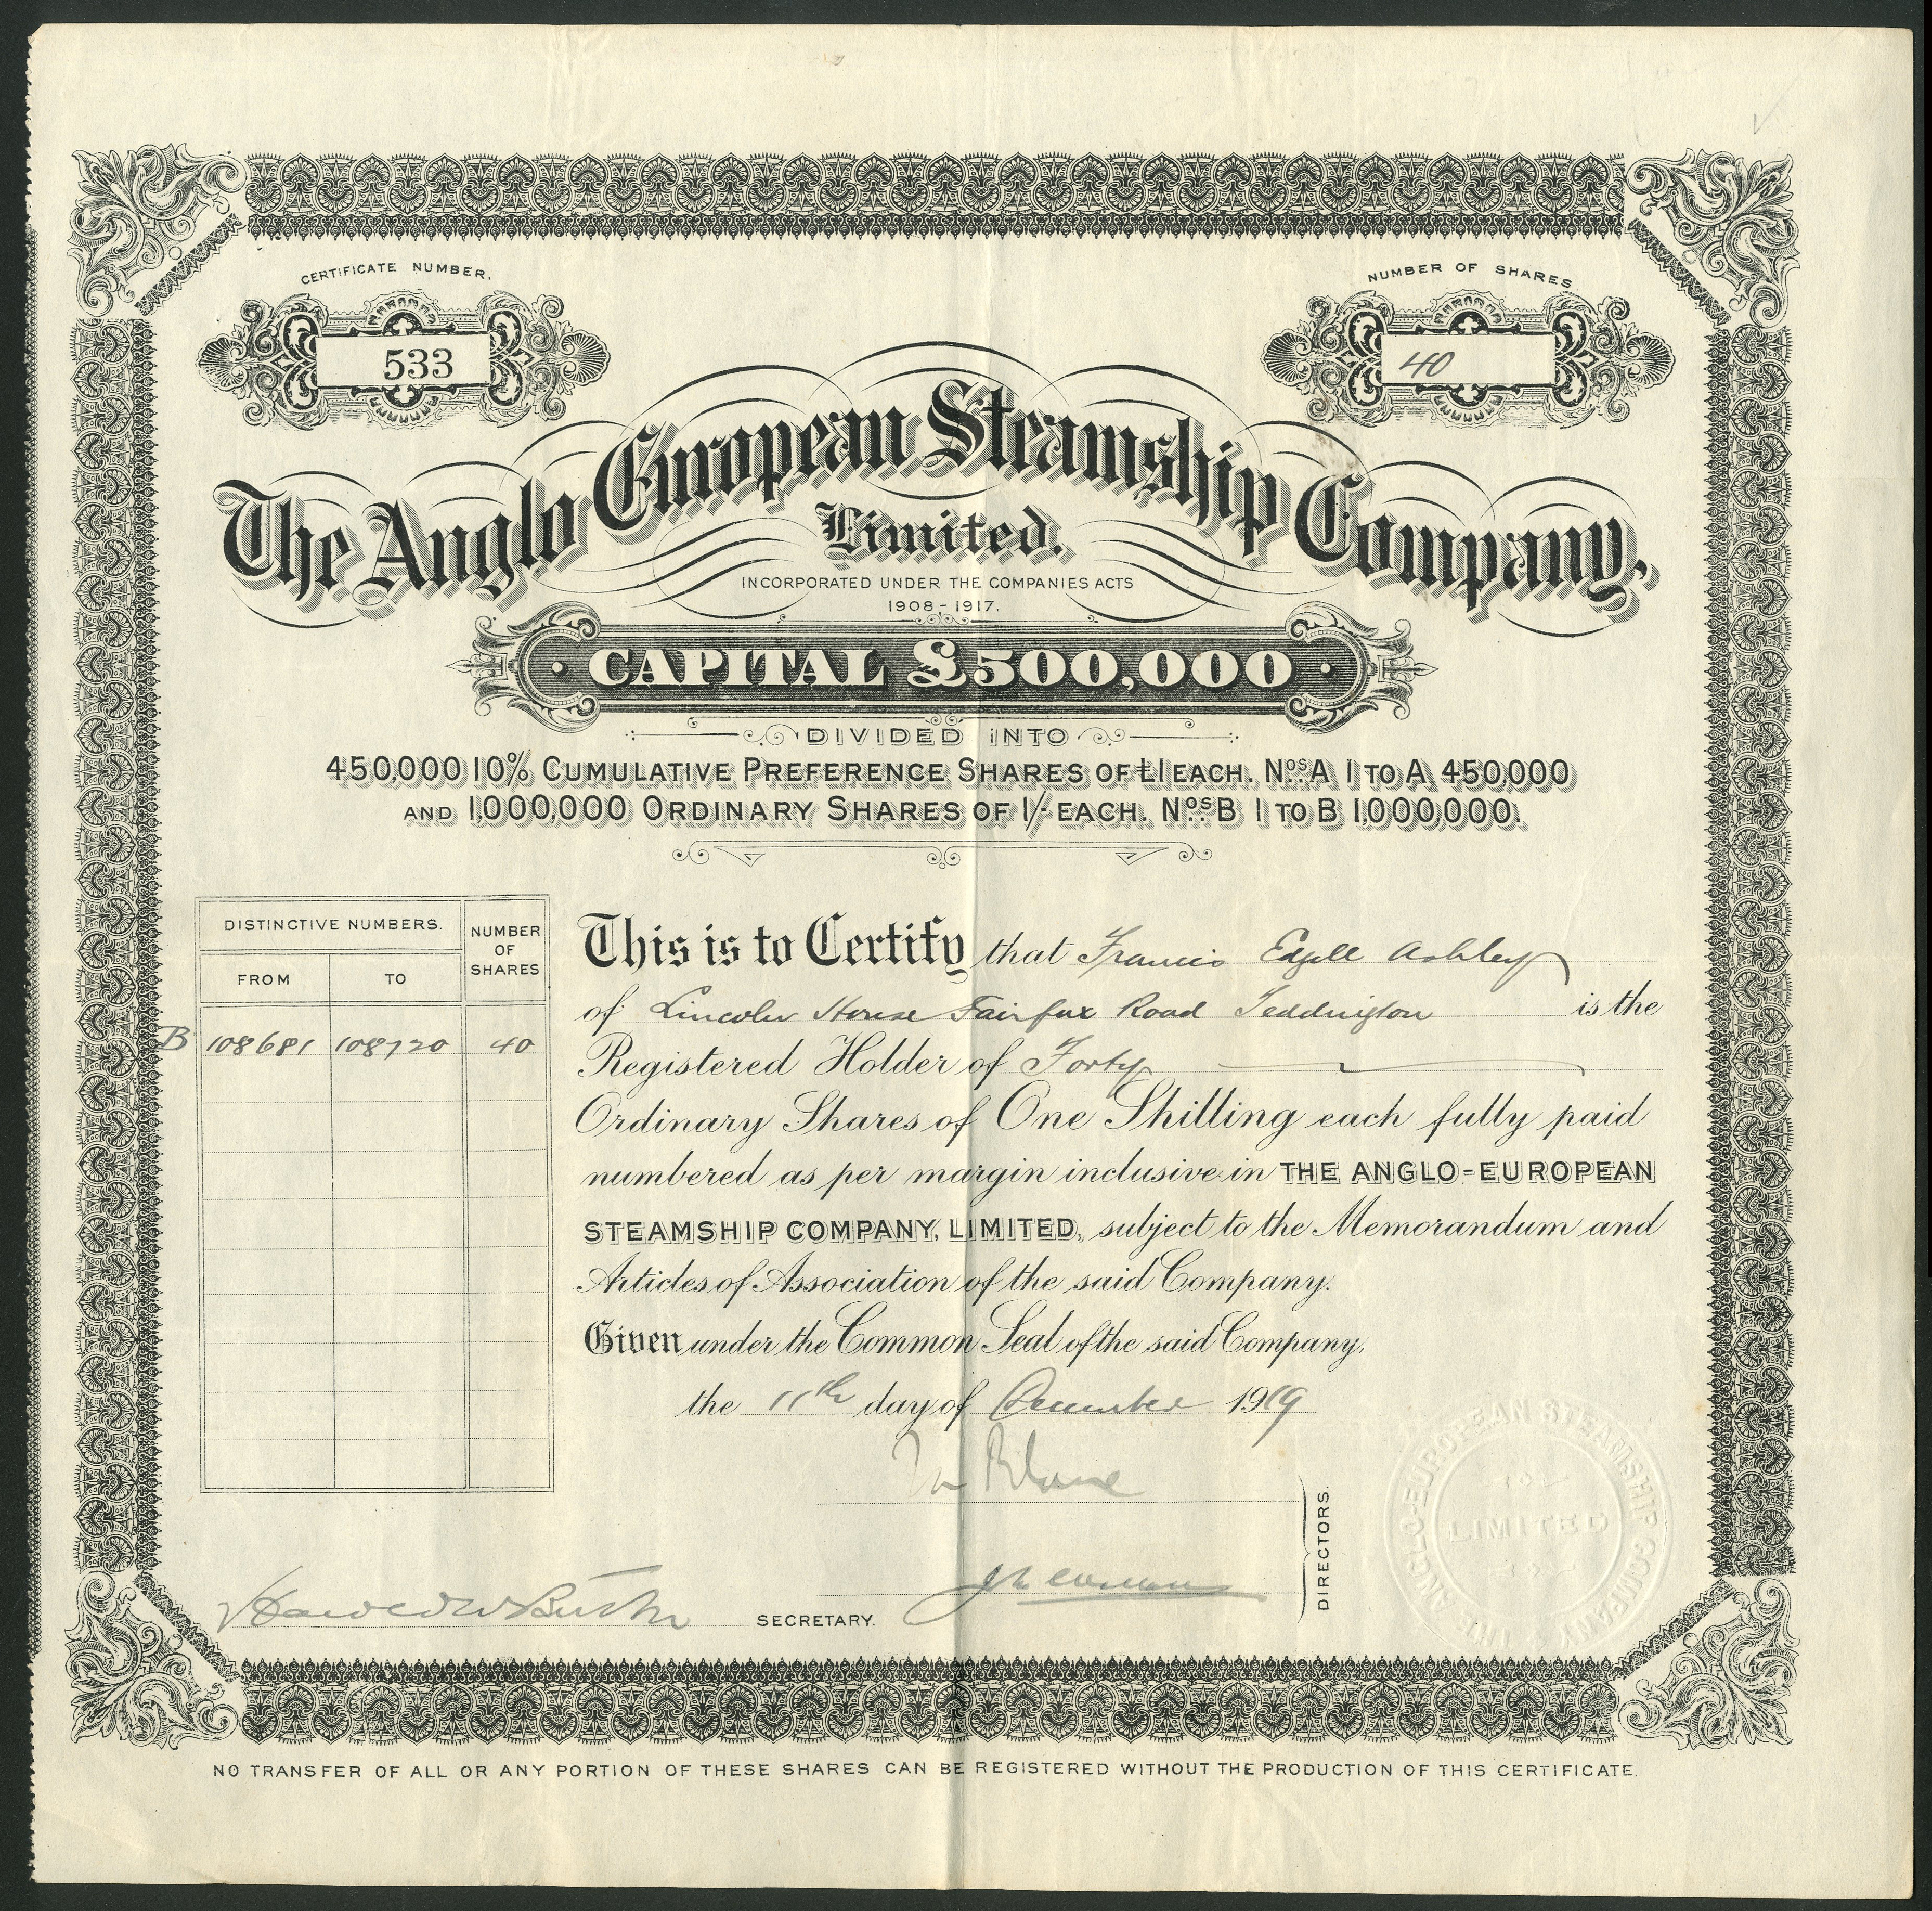 CERTIFICATE NUMBER.
533
NUMBER OF SHARES
40
The Anglo European Steamship Company,
Limited.
INCORPORATED UNDER THE COMPANIES ACTS
1908-1917.
CAPITAL £500,000
DIVIDED INTO
450,000 10% CUMULATIVE PREFERENCE SHARES OF £1 EACH. Nos. A 1 TO A 450,000
AND 1,000,000 ORDINARY SHARES OF 1/- EACH. Nos. B 1 TO B 1,000,000.
DISTINCTIVE NUMBERS.
NUMBER OF SHARES
FROM TO
B 108681 108720 40
This is to Certify that Francis Edgell Ashley
of Lincoln House Fairfax Road Teddington is the
Registered Holder of Forty
Ordinary Shares of One Shilling each fully paid
numbered as per margin inclusive in THE ANGLO-EUROPEAN
STEAMSHIP COMPANY, LIMITED, subject to the Memorandum and
Articles of Association of the said Company.
Given under the Common Seal of the said Company,
the 11th day of December 1919
DIRECTORS.
SECRETARY.
THE ANGLO-EUROPEAN STEAMSHIP COMPANY
LIMITED
NO TRANSFER OF ALL OR ANY PORTION OF THESE SHARES CAN BE REGISTERED WITHOUT THE PRODUCTION OF THIS CERTIFICATE.